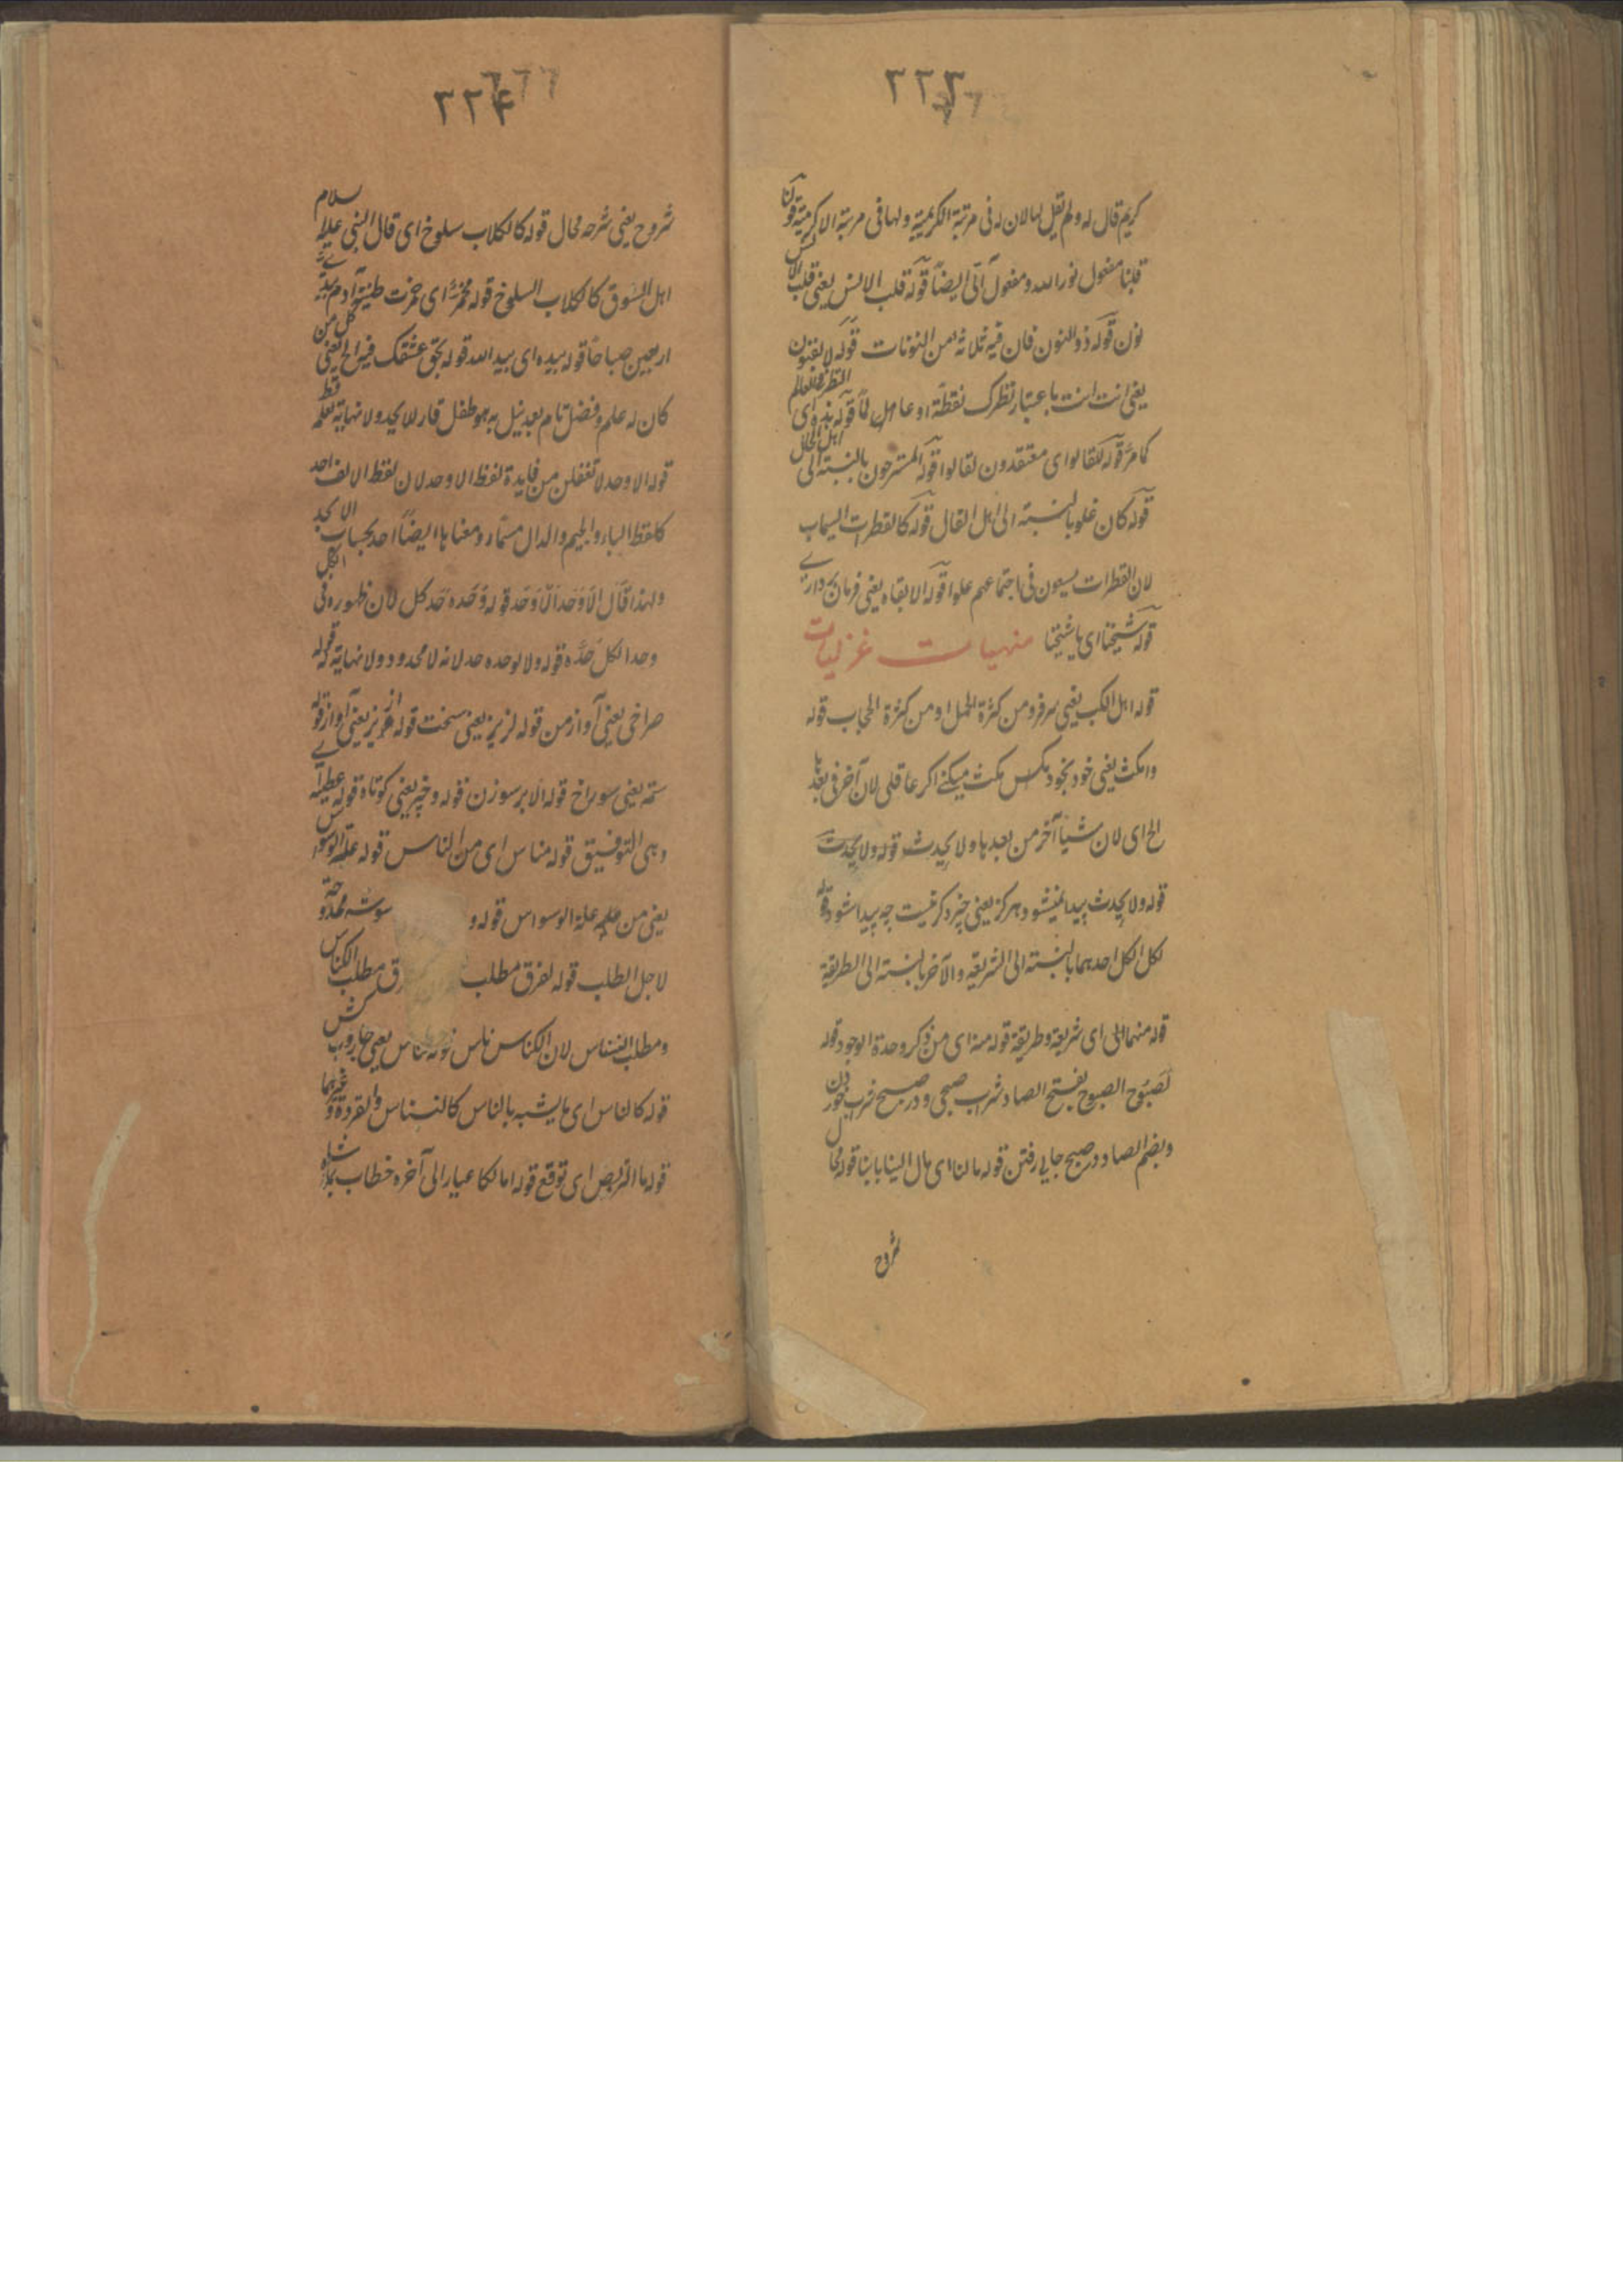 ٢٢٣
کریم قال له ولم یقل لها لان له فی مرتبة الکریمیة ولها فی مرتبة الاکرمیة قوله
قلبنا مفعول نور الله ومفعول ایضاً قوله قلب الانس یعنی قلب الانس
نون قوله ذو النون فان فیه ثلاثة من النونات قوله
یعنی انت انت باعتبار نظرک نقطة او عامل قوله ای
کما مر قوله لقالوا ای معتقدون لقالوا قوله المسترحون بالنسبة الی اهل الحال
قوله کان غلو بالنسبة الی اهل القال قوله کالقطرات السیماب
لان القطرات یسعون فی اجتماعهم علوا قوله الابقاء یعنی فرمان برداری
قوله شیخنا ای یا شیخنا منهیات غزلیات
قوله اهل الکب یعنی سرفرو من کثرة الحمل او من کثرة الحجاب قوله
وامکث یعنی خود بخود مکث میکنی اگر عاقلی لان آخر فی بعدها
الخ ای لان شیئا آخر من بعدها ولا یحدث قوله ولا یحدث
قوله ولا یحدث پیدا نمیشود هرگز یعنی چیز دگر نیست چه پیدا شود قوله
لکل الکل احدهما بالنسبة الی الشریعة والآخر بالنسبة الی الطریقة
قوله منهما الی ای شریعة وطریقة قوله منه ای من ذکر وحدة الوجود قوله
نصبوح الصبوح بفتح الصاد شراب صبحی ودر صبح شراب خوردن
وبضم الصاد در صبح جایی رفتن قوله مالنا ای مال الینا یابنا قوله محال
شروح
٢٢٤
شروح یعنی شرحه محال قوله کالکلاب سلوخ ای قال النبی علیه السلام
اهل السوق کالکلاب السلوخ قوله مخمر ای خمرت طینة آدم بیدی
اربعین صباحاً قوله بیده ای بید الله قوله بحق عشقک فیه الخ یعنی کل من
کان له علم وفضل تام بعد نیل به هو طفل قار لا یحد ولا نهایة لعلمه قط
قوله الاوحد لا تغفلن من فایدة لفظ الاوحد لان لفظ الالف احد
کلفظ الباء والجیم والدال مسماه ومعناها ایضاً احد بحساب الابجد
ولهذا قال الاوحد الاوحد قوله وحده حد کل لان ظهوره فی الکل
وحد الکل حده قوله ولا لوحده حد لانه لا محدود ولا نهایة له قوله
صراخی یعنی آواز من قوله لزیز یعنی سخت قوله ازیز یعنی آواز قوله
سمه یعنی سوراخ قوله الابر سوزن قوله وخیر یعنی کوتاه قوله عطیة
وهی التوفیق قوله مناس ای من الناس قوله علة الوسواس
یعنی من علة الوسواس قوله و
لاجل الطلب قوله لفرق مطلب فرق مطلب الکناس
ومطلب النسناس لان الکناس ناس قوله کناس یعنی جاروب کش
قوله کالناس ای ما یشبه بالناس کالنسناس والقردة وغیرهما
قوله ما التربص ای توقع قوله اما لکا عیار الی آخره خطاب